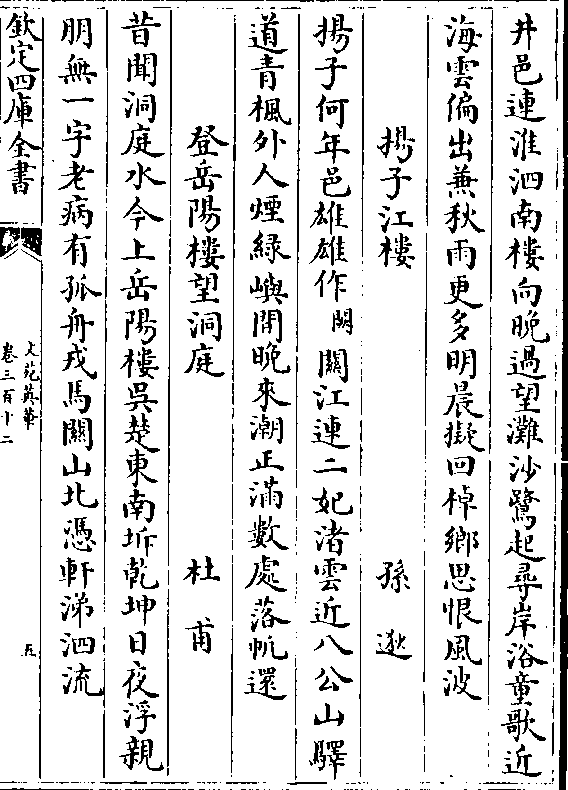 井邑連淮泗南樓向晚過望灘沙鷺起尋岸浴童歌近
海雲偏出兼秋雨更多明晨擬回棹鄉思恨風波
揚子江樓 孫逖
揚子何年邑雄雄作闕關江連二妃渚雲近八公山驛
道青楓外人煙綠嶼間晚來潮正滿數處落帆還
登岳陽樓望洞庭 杜甫
昔聞洞庭水今上岳陽樓吳楚東南坼乾坤日夜浮親
朋無一字老病有孤舟戎馬關山北憑軒涕泗流
欽定四庫全書
文苑英華
卷三百十二
五